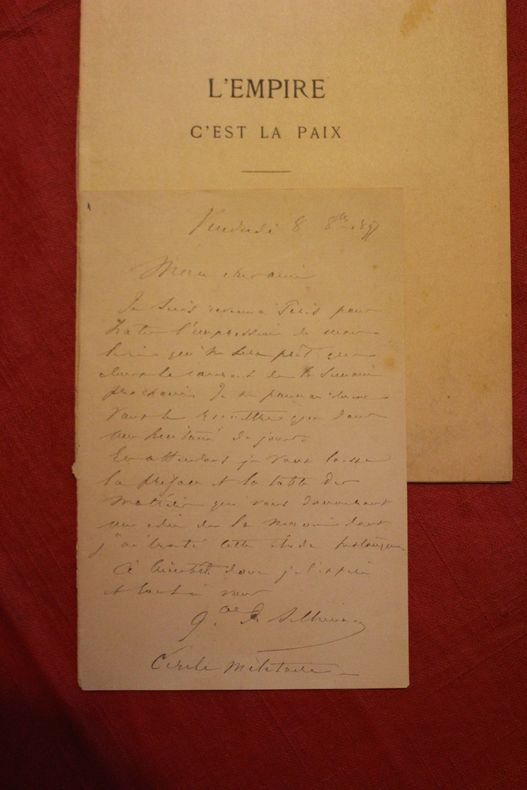 L'EMPIRE
C'EST LA PAIX
Vendredi 8 8bre
Mon cher ami
Je suis revenu à Paris pour
hâter l'impression de mon
livre qui ne sera prêt que
dans le courant de la semaine
prochaine. Je ne pourrai donc
vous le remettre que dans
une huitaine de jours.
En attendant je vous laisse
la préface et la table des
matières qui vous donneront
une idée de la manière dont
j'ai traité cette étude
à bientôt donc je l'espère
et tout à vous
Gal
Cercle Militaire